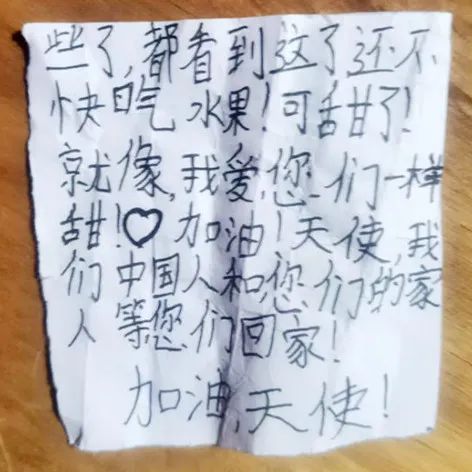 些了,都看到这了还不
快吃 水果!可甜了!
就像,我爱,您们一样
甜!♡ 加油!天使,我
们中国人和您们的家
人 等您们回家!
加油,天使!